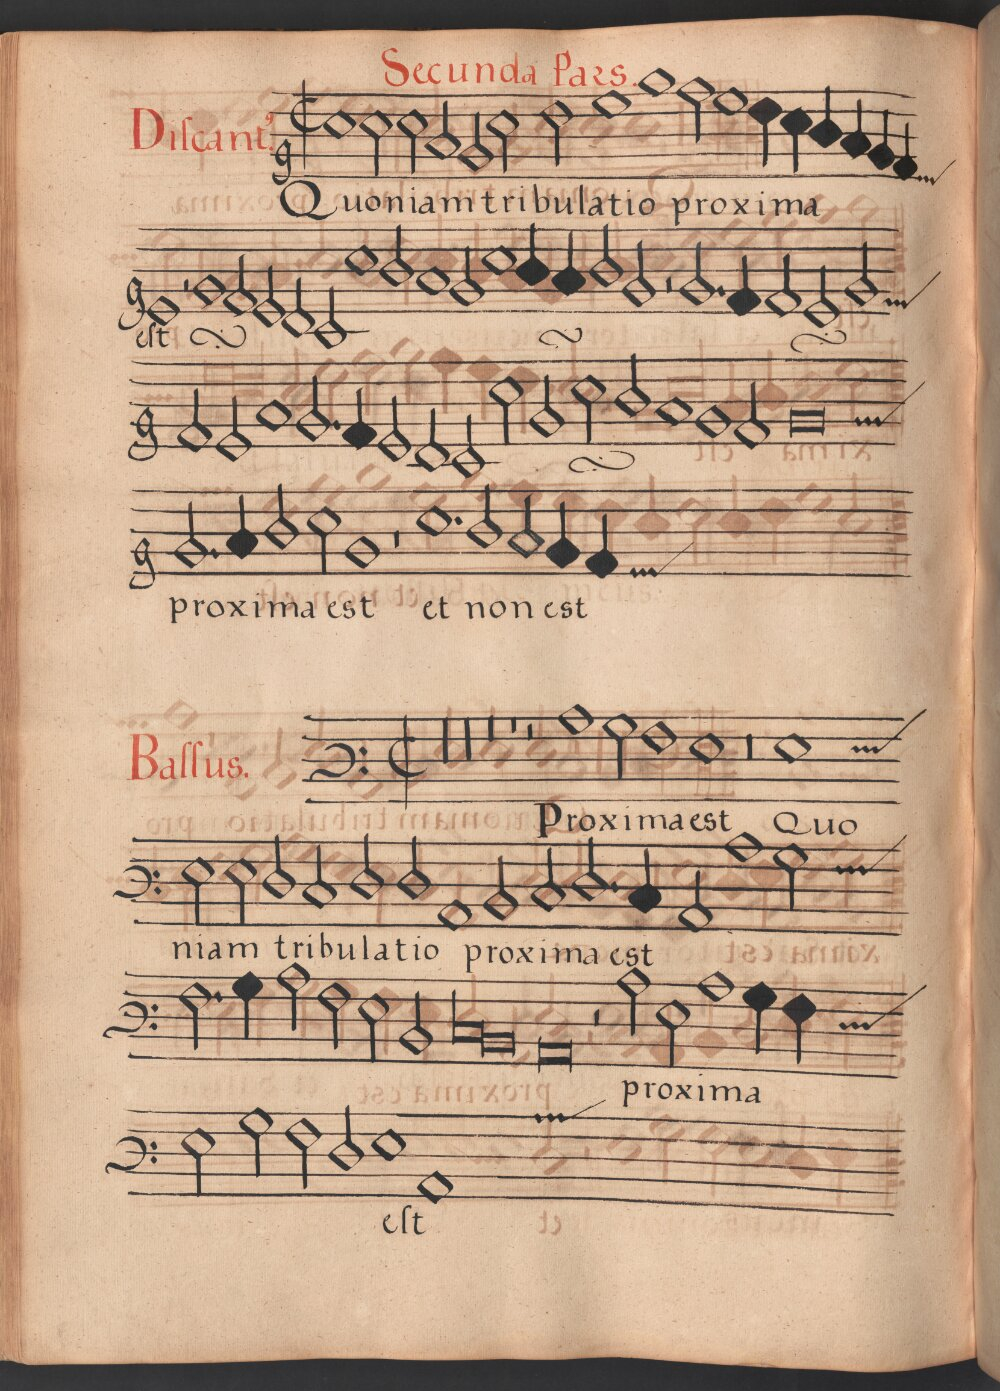 Secunda Pars.
Discant9.
Quoniam tribulatio proxima
est
proxima est et non est
Bassus.
Proxima est Quo
niam tribulatio proxima est
proxima
est